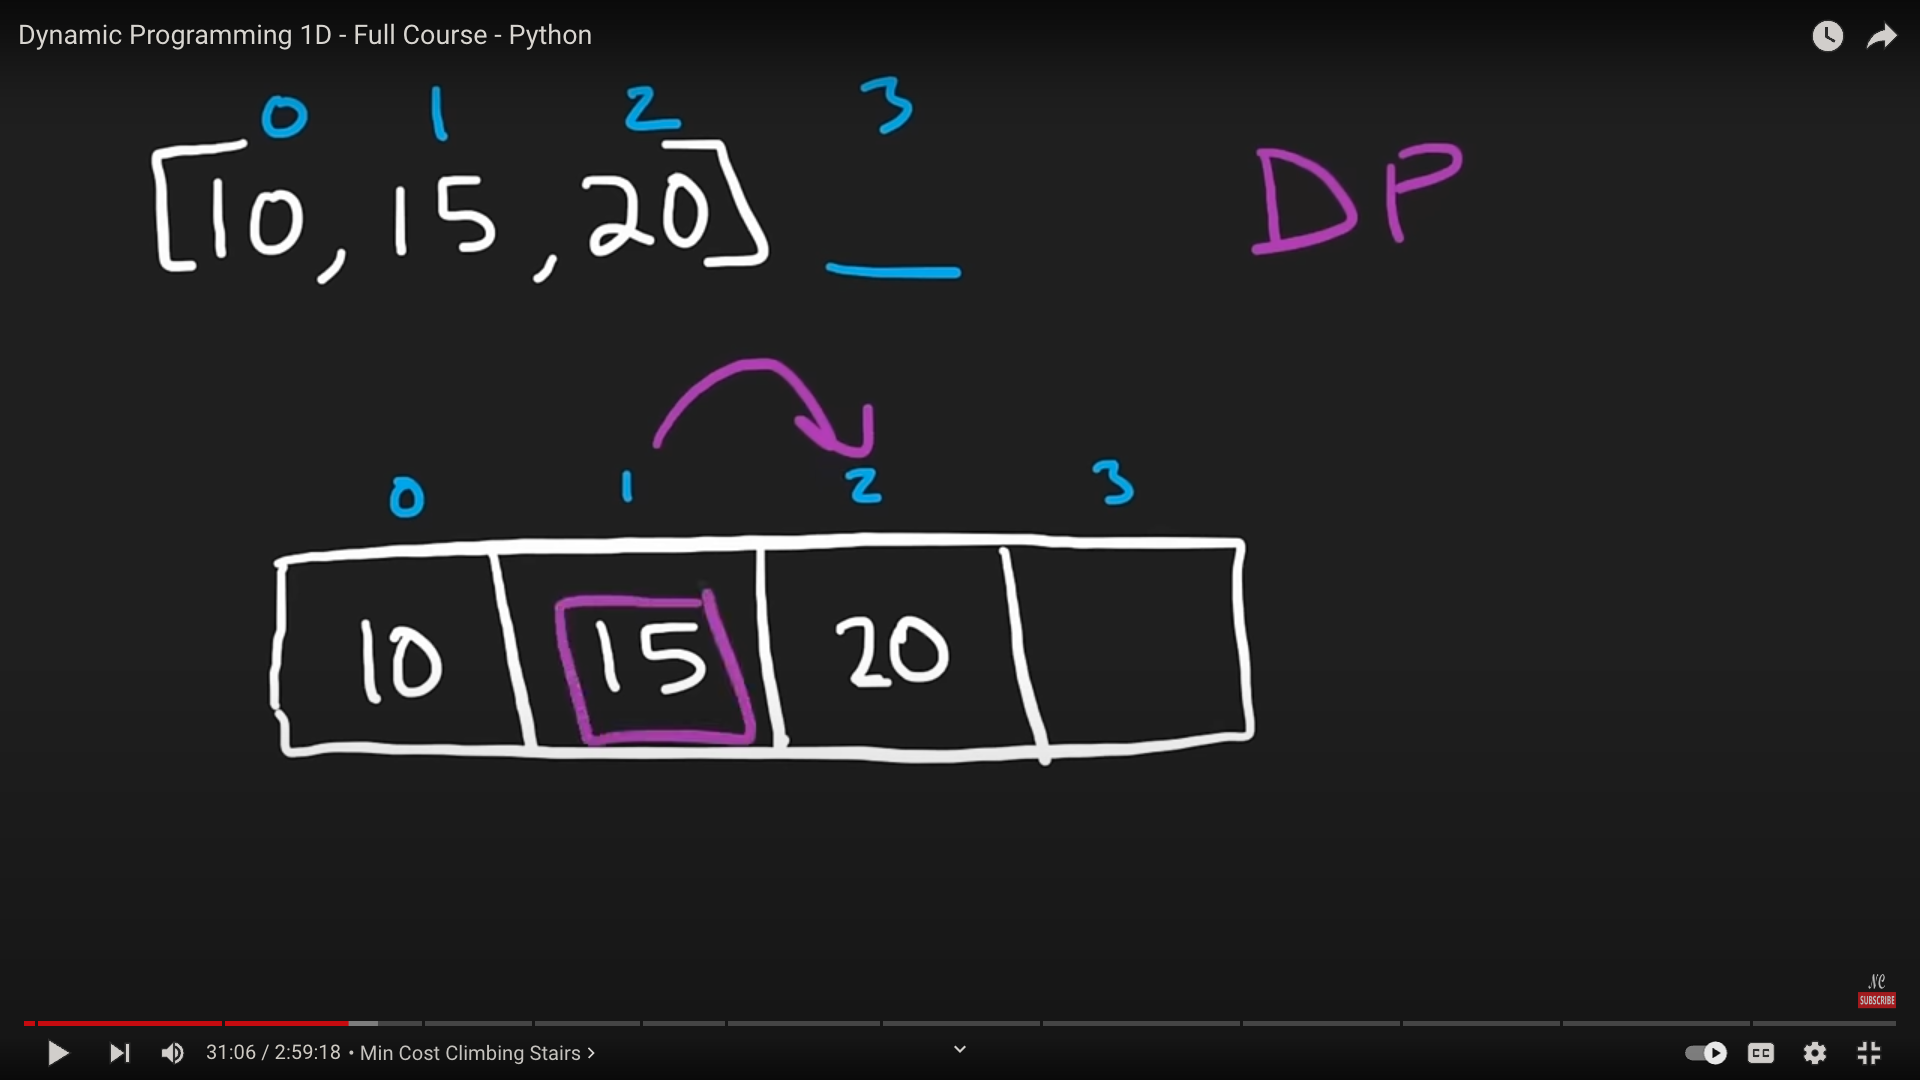 Dynamic Programming 1D - Full Course - Python
0 1 2 3
[10, 15, 20]
DP
0 1 2 3
10 15 20
NC
SUBSCRIBE
31:06 / 2:59:18 • Min Cost Climbing Stairs ›
CC